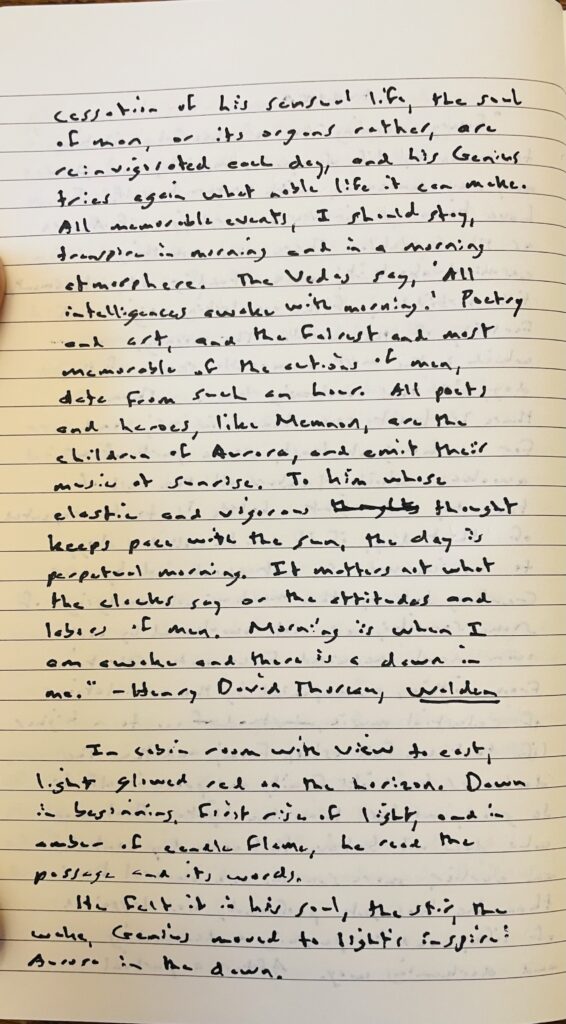 cessation of his sensual life, the soul
of man, or its organs rather, are
reinvigorated each day, and his Genius
tries again what noble life it can make.
All memorable events, I should say,
transpire in morning and in a morning
atmosphere. The Vedas say, 'All
intelligences awake with morning.' Poetry
and art, and the fairest and most
memorable of the actions of men,
date from such an hour. All poets
and heroes, like Memnon, are the
children of Aurora, and emit their
music at sunrise. To him whose
elastic and vigorous thought
keeps pace with the sun, the day is
perpetual morning. It matters not what
the clocks say or the attitudes and
labors of men. Morning is when I
am awake and there is a dawn in
me." - Henry David Thoreau, Walden
In cabin room with view to east,
light glowed red on the horizon. Dawn
in beginning, first rise of light, and in
amber of candle flame, he read the
passage and its words.
He felt it in his soul, the stir, the
wake, Genius moved to light's inspire:
Aurora in the dawn.